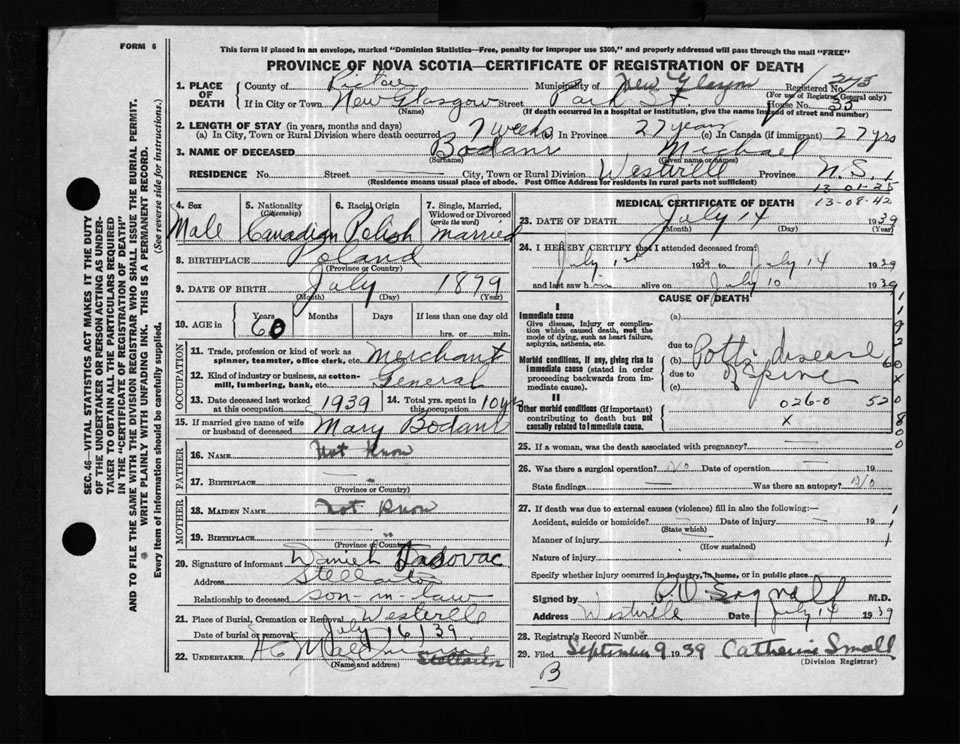 FORM 6
This form if placed in an envelope, marked "Dominion Statistics—Free, penalty for improper use $300," and properly addressed will pass through the mail "FREE"
PROVINCE OF NOVA SCOTIA—CERTIFICATE OF REGISTRATION OF DEATH
SEC. 46—VITAL STATISTICS ACT MAKES IT THE DUTY OF THE UNDERTAKER OR PERSON ACTING AS UNDERTAKER TO OBTAIN ALL THE PARTICULARS REQUIRED IN THE "CERTIFICATE OF REGISTRATION OF DEATH" AND TO FILE THE SAME WITH THE DIVISION REGISTRAR WHO SHALL ISSUE THE BURIAL PERMIT.
WRITE PLAINLY WITH UNFADING INK. THIS IS A PERMANENT RECORD.
Every item of information should be carefully supplied. (See reverse side for instructions.)
1. PLACE OF DEATH County of Pictou Municipality of New Glasgow Registered No. 273
(For use of Registrar General only)
If in City or Town New Glasgow Street Park St. House No. 35
(Name) (If death occurred in a hospital or institution, give the name instead of street and number)
2. LENGTH OF STAY (in years, months and days)
(a) In City, Town or Rural Division where death occurred 7 weeks In Province 27 years (c) In Canada (if immigrant) 27 yrs
3. NAME OF DECEASED Bodanr Michael
(Surname) (Given name or names)
RESIDENCE No. Street City, Town or Rural Division Westville Province N.S.
(Residence means usual place of abode. Post Office Address for residents in rural parts not sufficient)
13-01-25
13-08-42
4. Sex Male
5. Nationality (Citizenship) Canadian
6. Racial Origin Polish
7. Single, Married, Widowed or Divorced (write the word) Married
8. BIRTHPLACE Poland
(Province or Country)
9. DATE OF BIRTH July 1879
(Month) (Day) (Year)
10. AGE in Years 60 Months Days If less than one day old hrs. or min.
OCCUPATION
11. Trade, profession or kind of work as spinner, teamster, office clerk, etc. Merchant
12. Kind of industry or business, as cotton-mill, lumbering, bank, etc. General
13. Date deceased last worked at this occupation 1939 14. Total yrs. spent in this occupation 10 yrs
15. If married give name of wife or husband of deceased Mary Bodanr
FATHER
16. NAME Not Know
17. BIRTHPLACE "
(Province or Country)
MOTHER
18. MAIDEN NAME Not Know
19. BIRTHPLACE "
(Province or Country)
20. Signature of informant Daniel Tadovac
Address Stellarton
Relationship to deceased son-in-law
21. Place of Burial, Cremation or Removal Westville
Date of burial or removal July 16/39
22. UNDERTAKER
(Name and address) Stellarton
MEDICAL CERTIFICATE OF DEATH
23. DATE OF DEATH July 14 1939
(Month) (Day) (Year)
24. I HEREBY CERTIFY that I attended deceased from:
July 1st 1939 to July 14 1939
and last saw him alive on July 10 1939
CAUSE OF DEATH
I
Immediate cause
Give disease, injury or complication which caused death, not the mode of dying, such as heart failure, asphyxia, asthenia, etc.
(a)
due to
Morbid conditions, if any, giving rise to immediate cause (stated in order proceeding backwards from immediate cause).
(b) Potts disease
due to of spine
(c)
II
Other morbid conditions (if important) contributing to death but not causally related to immediate cause.
026-0 520
x
25. If a woman, was the death associated with pregnancy?
26. Was there a surgical operation? No Date of operation 19
State findings Was there an autopsy? No
27. If death was due to external causes (violence) fill in also the following:—
Accident, suicide or homicide? Date of injury 19
(State which)
Manner of injury
(How sustained)
Nature of injury
Specify whether injury occurred in industry, in home, or in public place
Signed by M.D.
Address Westville Date July 14 1939
28. Registrar's Record Number
29. Filed September 9 1939 Catherine Small
(Division Registrar)
B